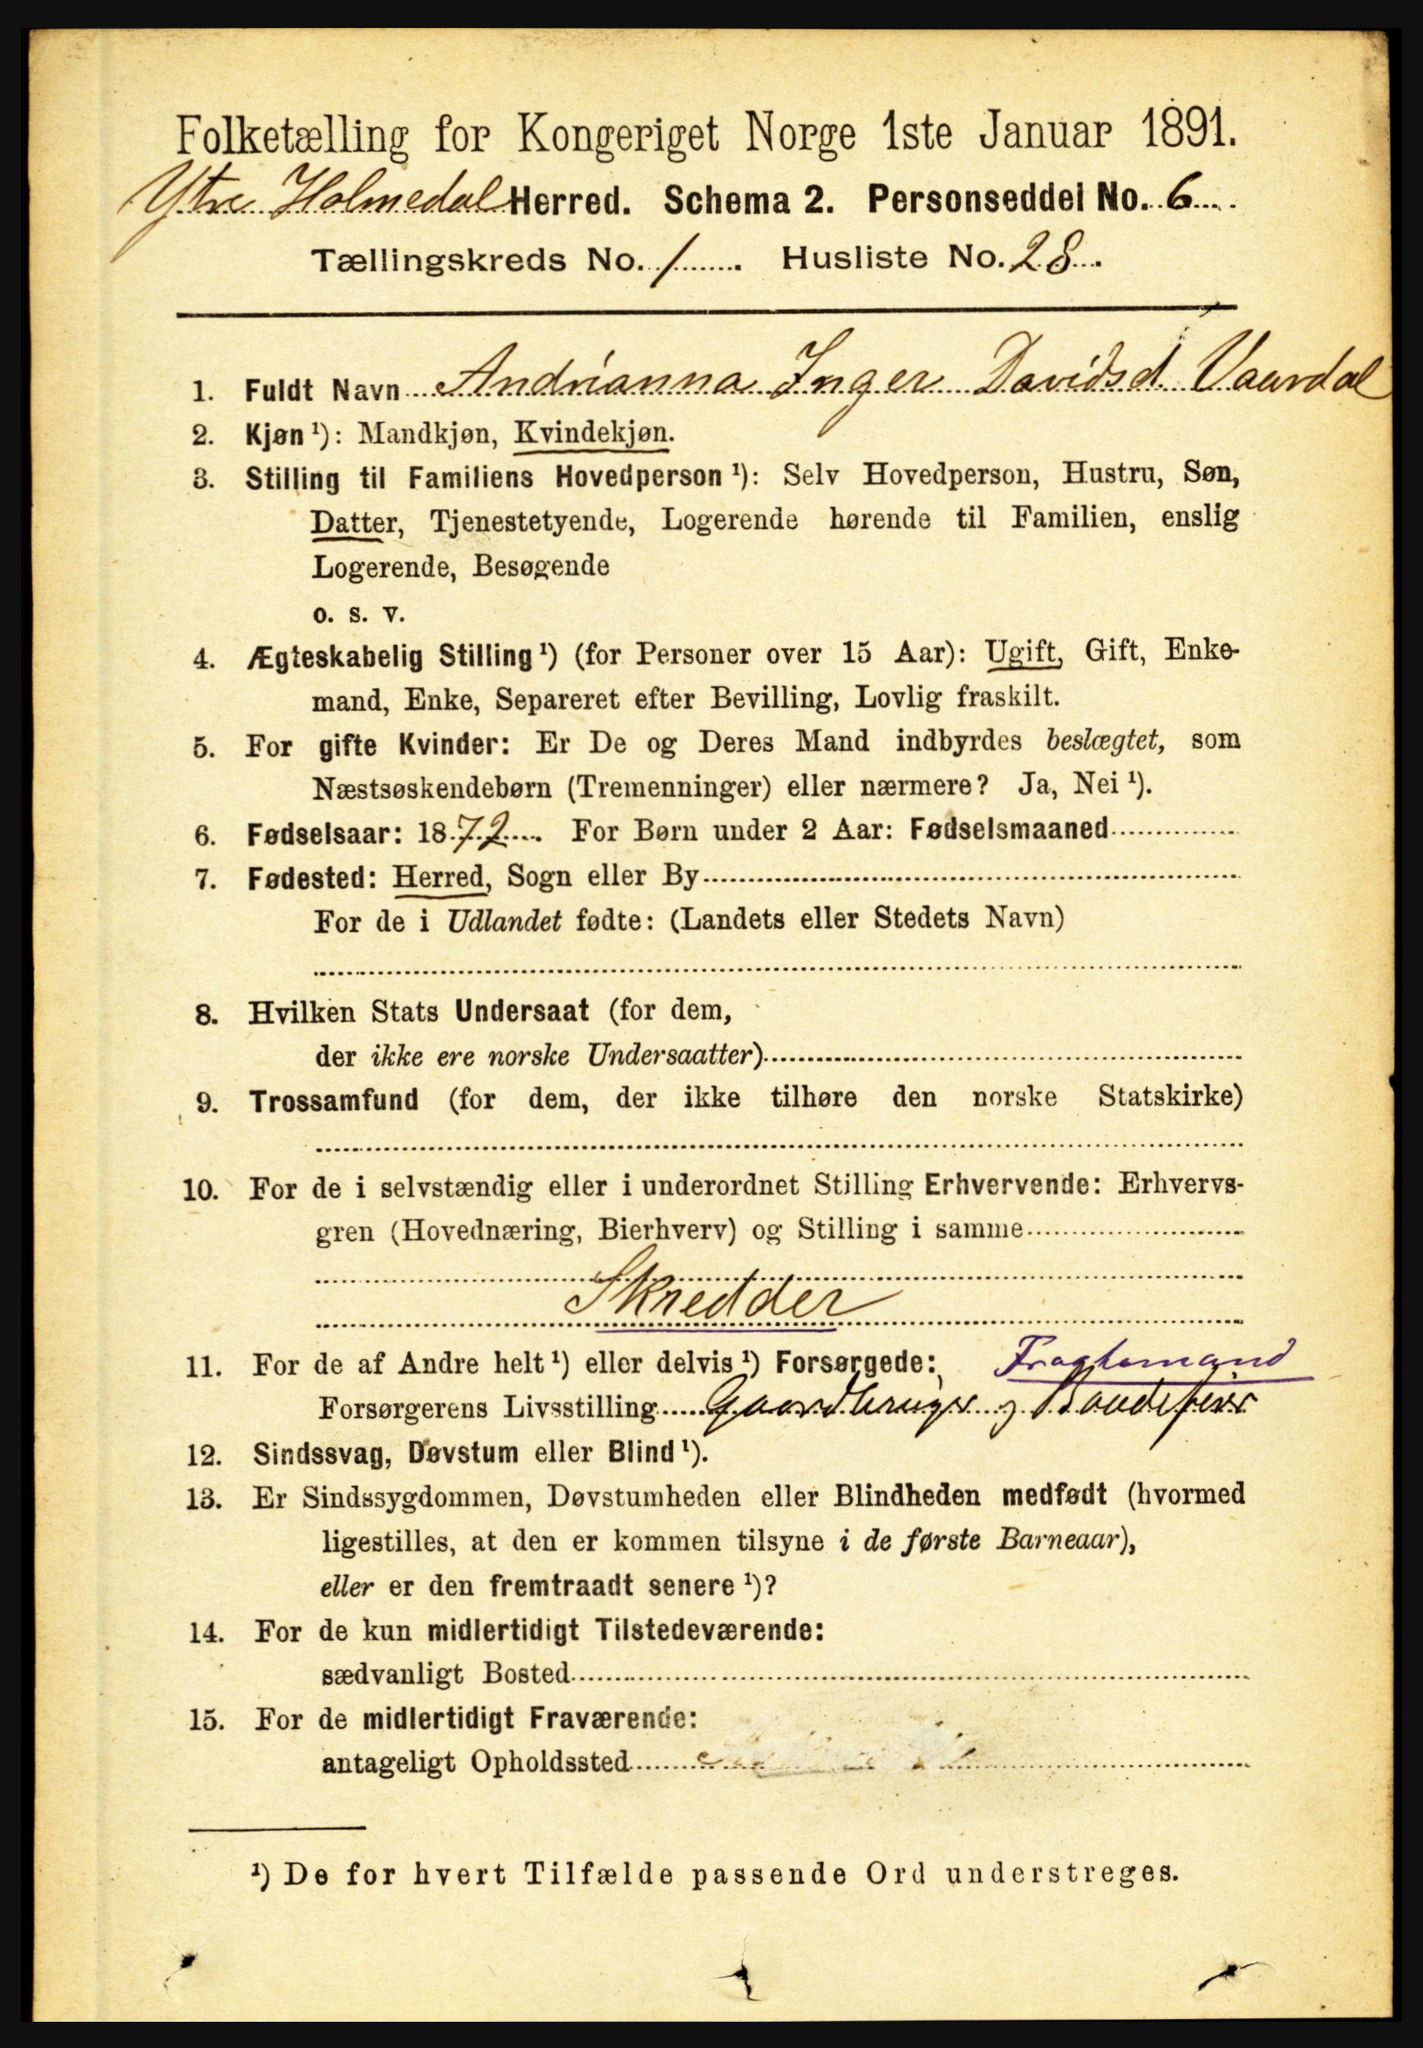 Folketælling for Kongeriget Norge 1ste Januar 1891.
Ytre Holmedal Herred. Schema 2. Personseddel No. 6
Tællingskreds No. 1. Husliste No. 28.
1. Fuldt Navn Andrianna Inger Davidsd Vaardal
2. Kjøn ¹): Mandkjøn, Kvindekjøn.
3. Stilling til Familiens Hovedperson ¹): Selv Hovedperson, Hustru, Søn,
Datter, Tjenestetyende, Logerende hørende til Familien, enslig
Logerende, Besøgende
o. s. v.
4. Ægteskabelig Stilling ¹) (for Personer over 15 Aar): Ugift, Gift, Enke-
mand, Enke, Separeret efter Bevilling, Lovlig fraskilt.
5. For gifte Kvinder: Er De og Deres Mand indbyrdes beslægtet, som
Næstsøskendebørn (Tremenninger) eller nærmere? Ja, Nei ¹).
6. Fødselsaar: 1872. For Børn under 2 Aar: Fødselsmaaned
7. Fødested: Herred, Sogn eller By
For de i Udlandet fødte: (Landets eller Stedets Navn)
8. Hvilken Stats Undersaat (for dem,
der ikke ere norske Undersaatter)
9. Trossamfund (for dem, der ikke tilhøre den norske Statskirke)
10. For de i selvstændig eller i underordnet Stilling Erhvervende: Erhvervs-
gren (Hovednæring, Bierhverv) og Stilling i samme
Skredder
11. For de af Andre helt ¹) eller delvis ¹) Forsørgede: Fragtemand
Forsørgerens Livsstilling Gaardbruger og
12. Sindssvag, Døvstum eller Blind ¹).
13. Er Sindssygdommen, Døvstumheden eller Blindheden medfødt (hvormed
ligestilles, at den er kommen tilsyne i de første Barneaar),
eller er den fremtraadt senere ¹)?
14. For de kun midlertidigt Tilstedeværende:
sædvanligt Bosted
15. For de midlertidigt Fraværende:
antageligt Opholdssted
¹) De for hvert Tilfælde passende Ord understreges.